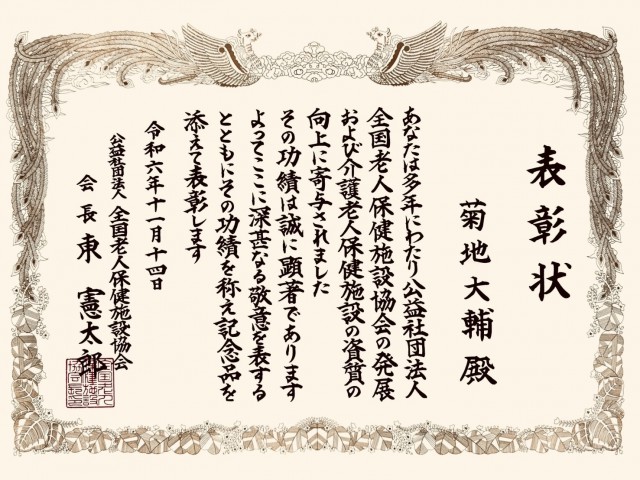 表彰状
菊地大輔殿
あなたは多年にわたり公益社団法人
全国老人保健施設協会の発展
および介護老人保健施設の資質の
向上に寄与されました
その功績は誠に顕著であります
よってここに深甚なる敬意を表する
とともにその功績を称え記念品を
添えて表彰します
令和六年十一月十四日
公益社団法人 全国老人保健施設協会
会長 東 憲太郎